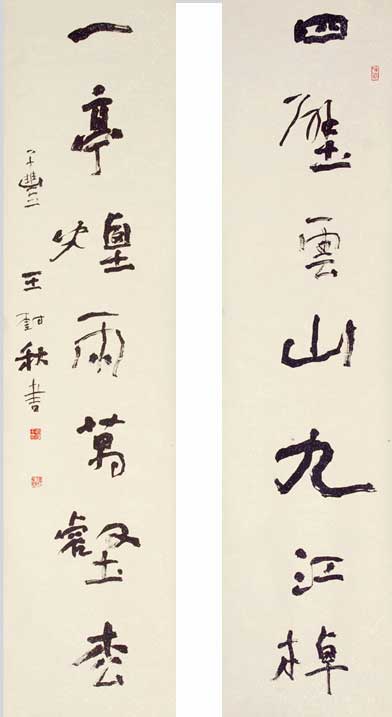 四壁雲山九江棹
一亭煙雨萬壑枩
王秋書